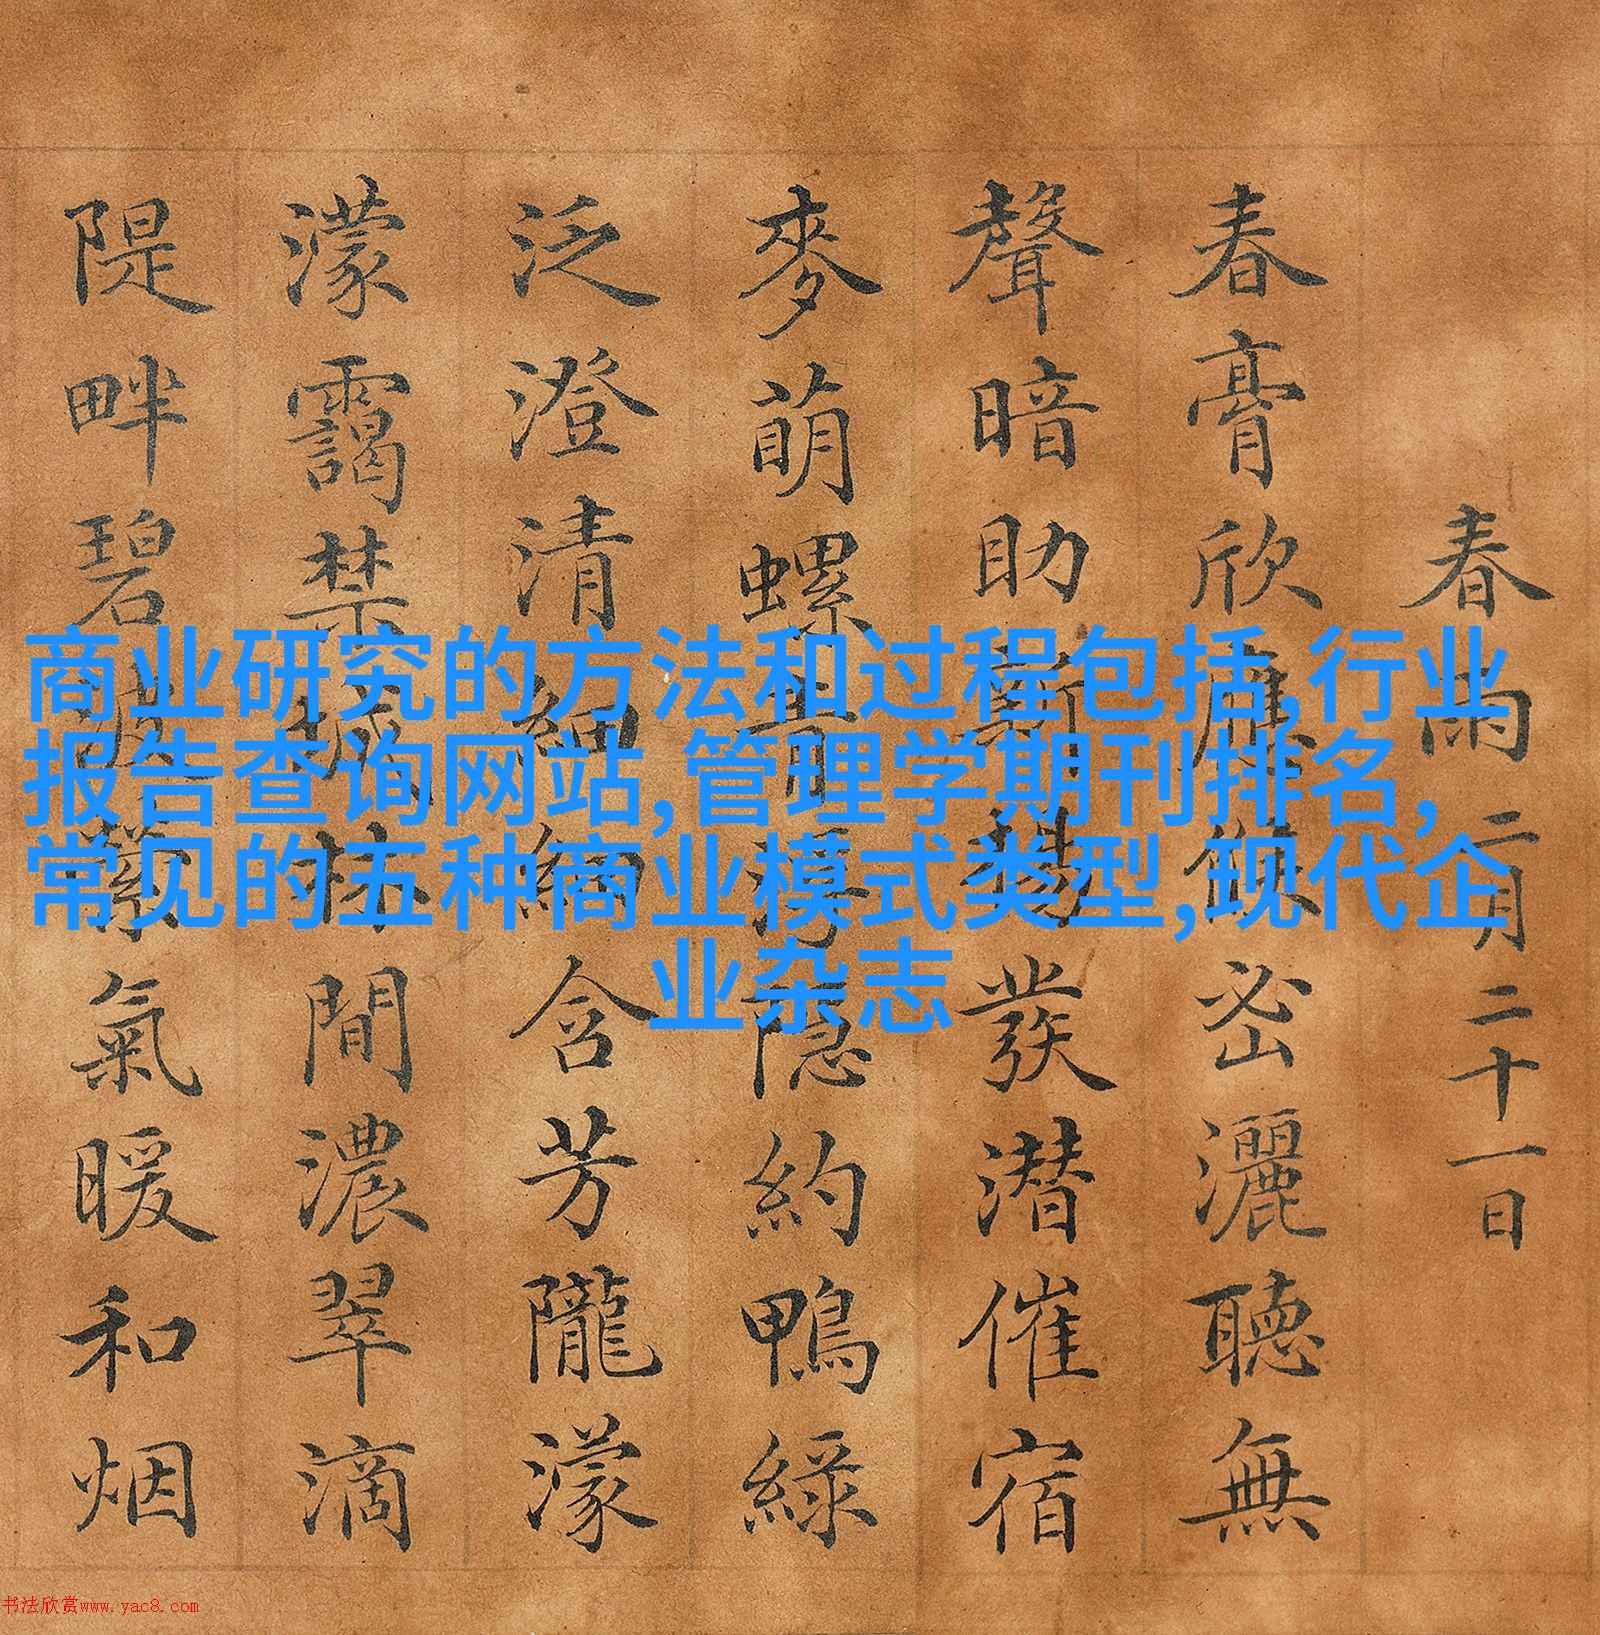 春雨二月二十一日
春膏欣應密灑聽無
聲暗助發潛催宿
麥萌螺青隱約鴨綠
泛澄清細含芳隴濛
濛靄禁城林間濃翠滴
隄畔碧波縈氣暖和烟
商业研究的方法和过程包括,行业
报告查询网站,管理学期刊排名,
常见的五种商业模式类型,现代企
业杂志
书法欣赏www.yac8.com